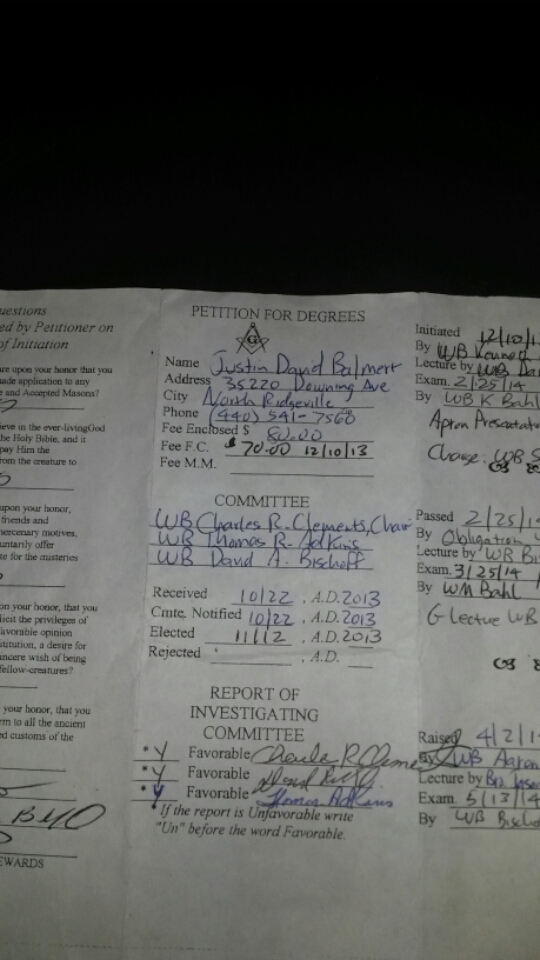 uestions
ed by Petitioner on
of Initiation
are upon your honor that you
made application to any
e and Accepted Masons?
ieve in the ever-livingGod
the Holy Bible, and it
pay Him the
rom the creature to
upon your honor,
friends and
mercenary motives,
untarily offer
te for the misteries
on your honor, that you
licit the privileges of
favorable opinion
stitution, a desire for
incere wish of being
fellow-creatures?
your honor, that you
rm to all the ancient
ed customs of the
EWARDS
PETITION FOR DEGREES
G
Name Justin David Balmert
Address 35220 Downing Ave
City North Ridgeville
Phone (440) 541-7560
Fee Enclosed $ 80.00
Fee F.C. $70.00 12/10/13
Fee M.M.
COMMITTEE
WB Charles R. Clements, Chair
WB Thomas R. Adkins
WB David A. Bischoff
Received 10/22 , A.D. 2013
Cmte. Notified 10/22 , A.D. 2013
Elected 11/12 , A.D. 2013
Rejected , A.D.
REPORT OF
INVESTIGATING
COMMITTEE
*Y Favorable Charles R Cleme
*Y Favorable
*Y Favorable Thomas Adkins
*If the report is Unfavorable write
"Un" before the word Favorable.
Initiated 12/10/1
By WB Kenneth
Lecture by WB Da
Exam. 2/25/14
By WB K Bahl
Apron Presentatio
Charge. WB S
Passed 2/25/1
By Obligation
Lecture by WB Bi
Exam 3/25/14
By WM Bahl
G lecture WB
Raised 4/2/1
By WB Aaron
Lecture by Bro. Jose
Exam. 5/13/14
By WB Bischo